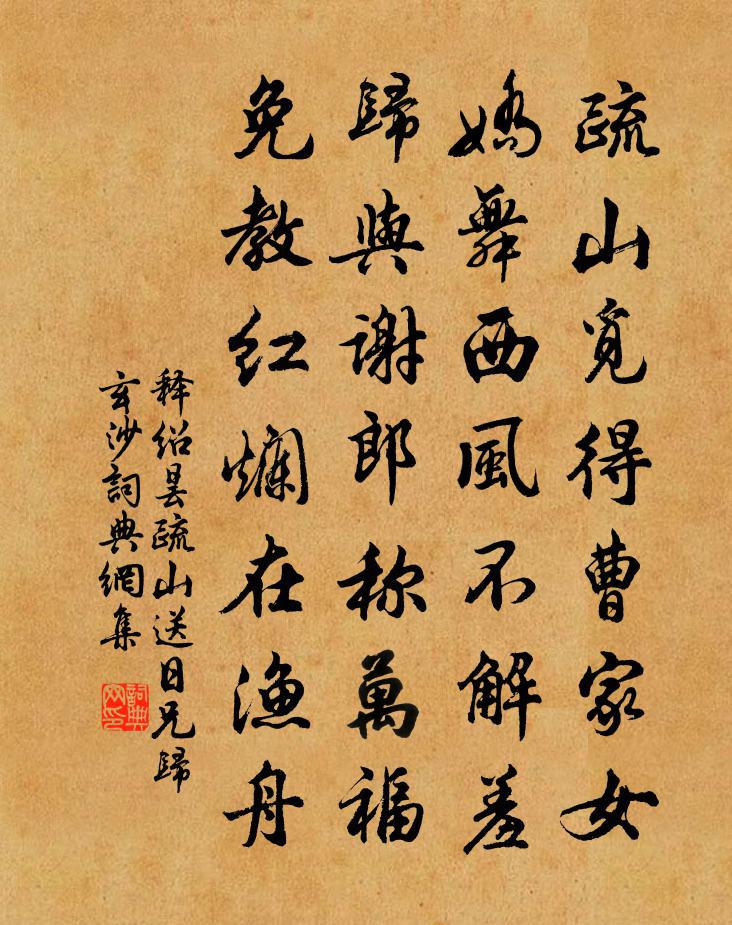 疏山覓得曹家女
嬌舞西風不解羞
歸與謝郎称萬福
免教紅爛在漁舟
释紹曇疏山送日兄歸
玄沙詞典網集
詞典
网印